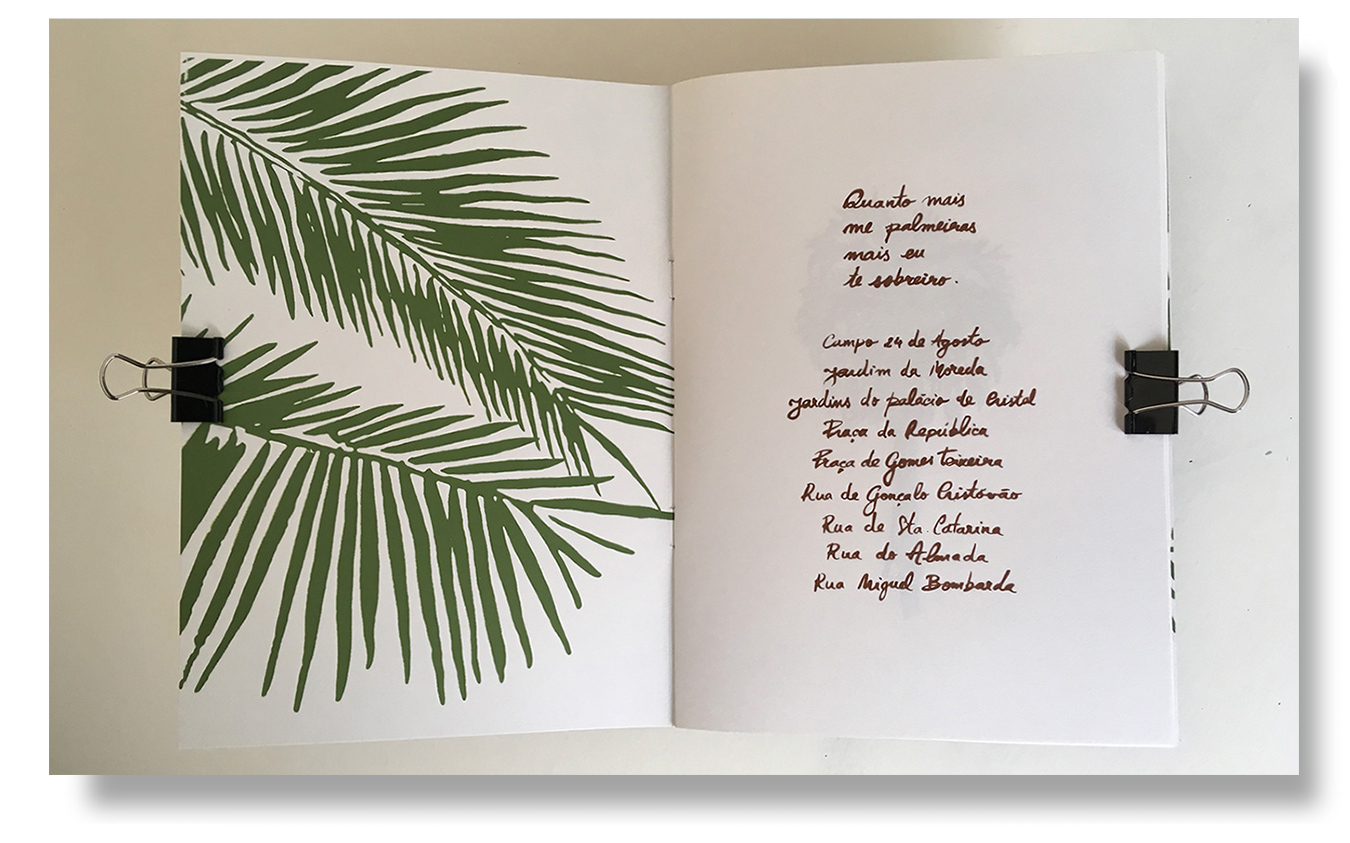 Quanto mais
me palmeiras
mais eu
te sobreiro.
Campo 24 de Agosto
Jardim da Moreda
Jardins do palácio de Cristal
Praça da República
Praça de Gomes Teixeira
Rua de Gonçalo Cristóvão
Rua de Sta. Catarina
Rua do Almada
Rua Miguel Bombarda